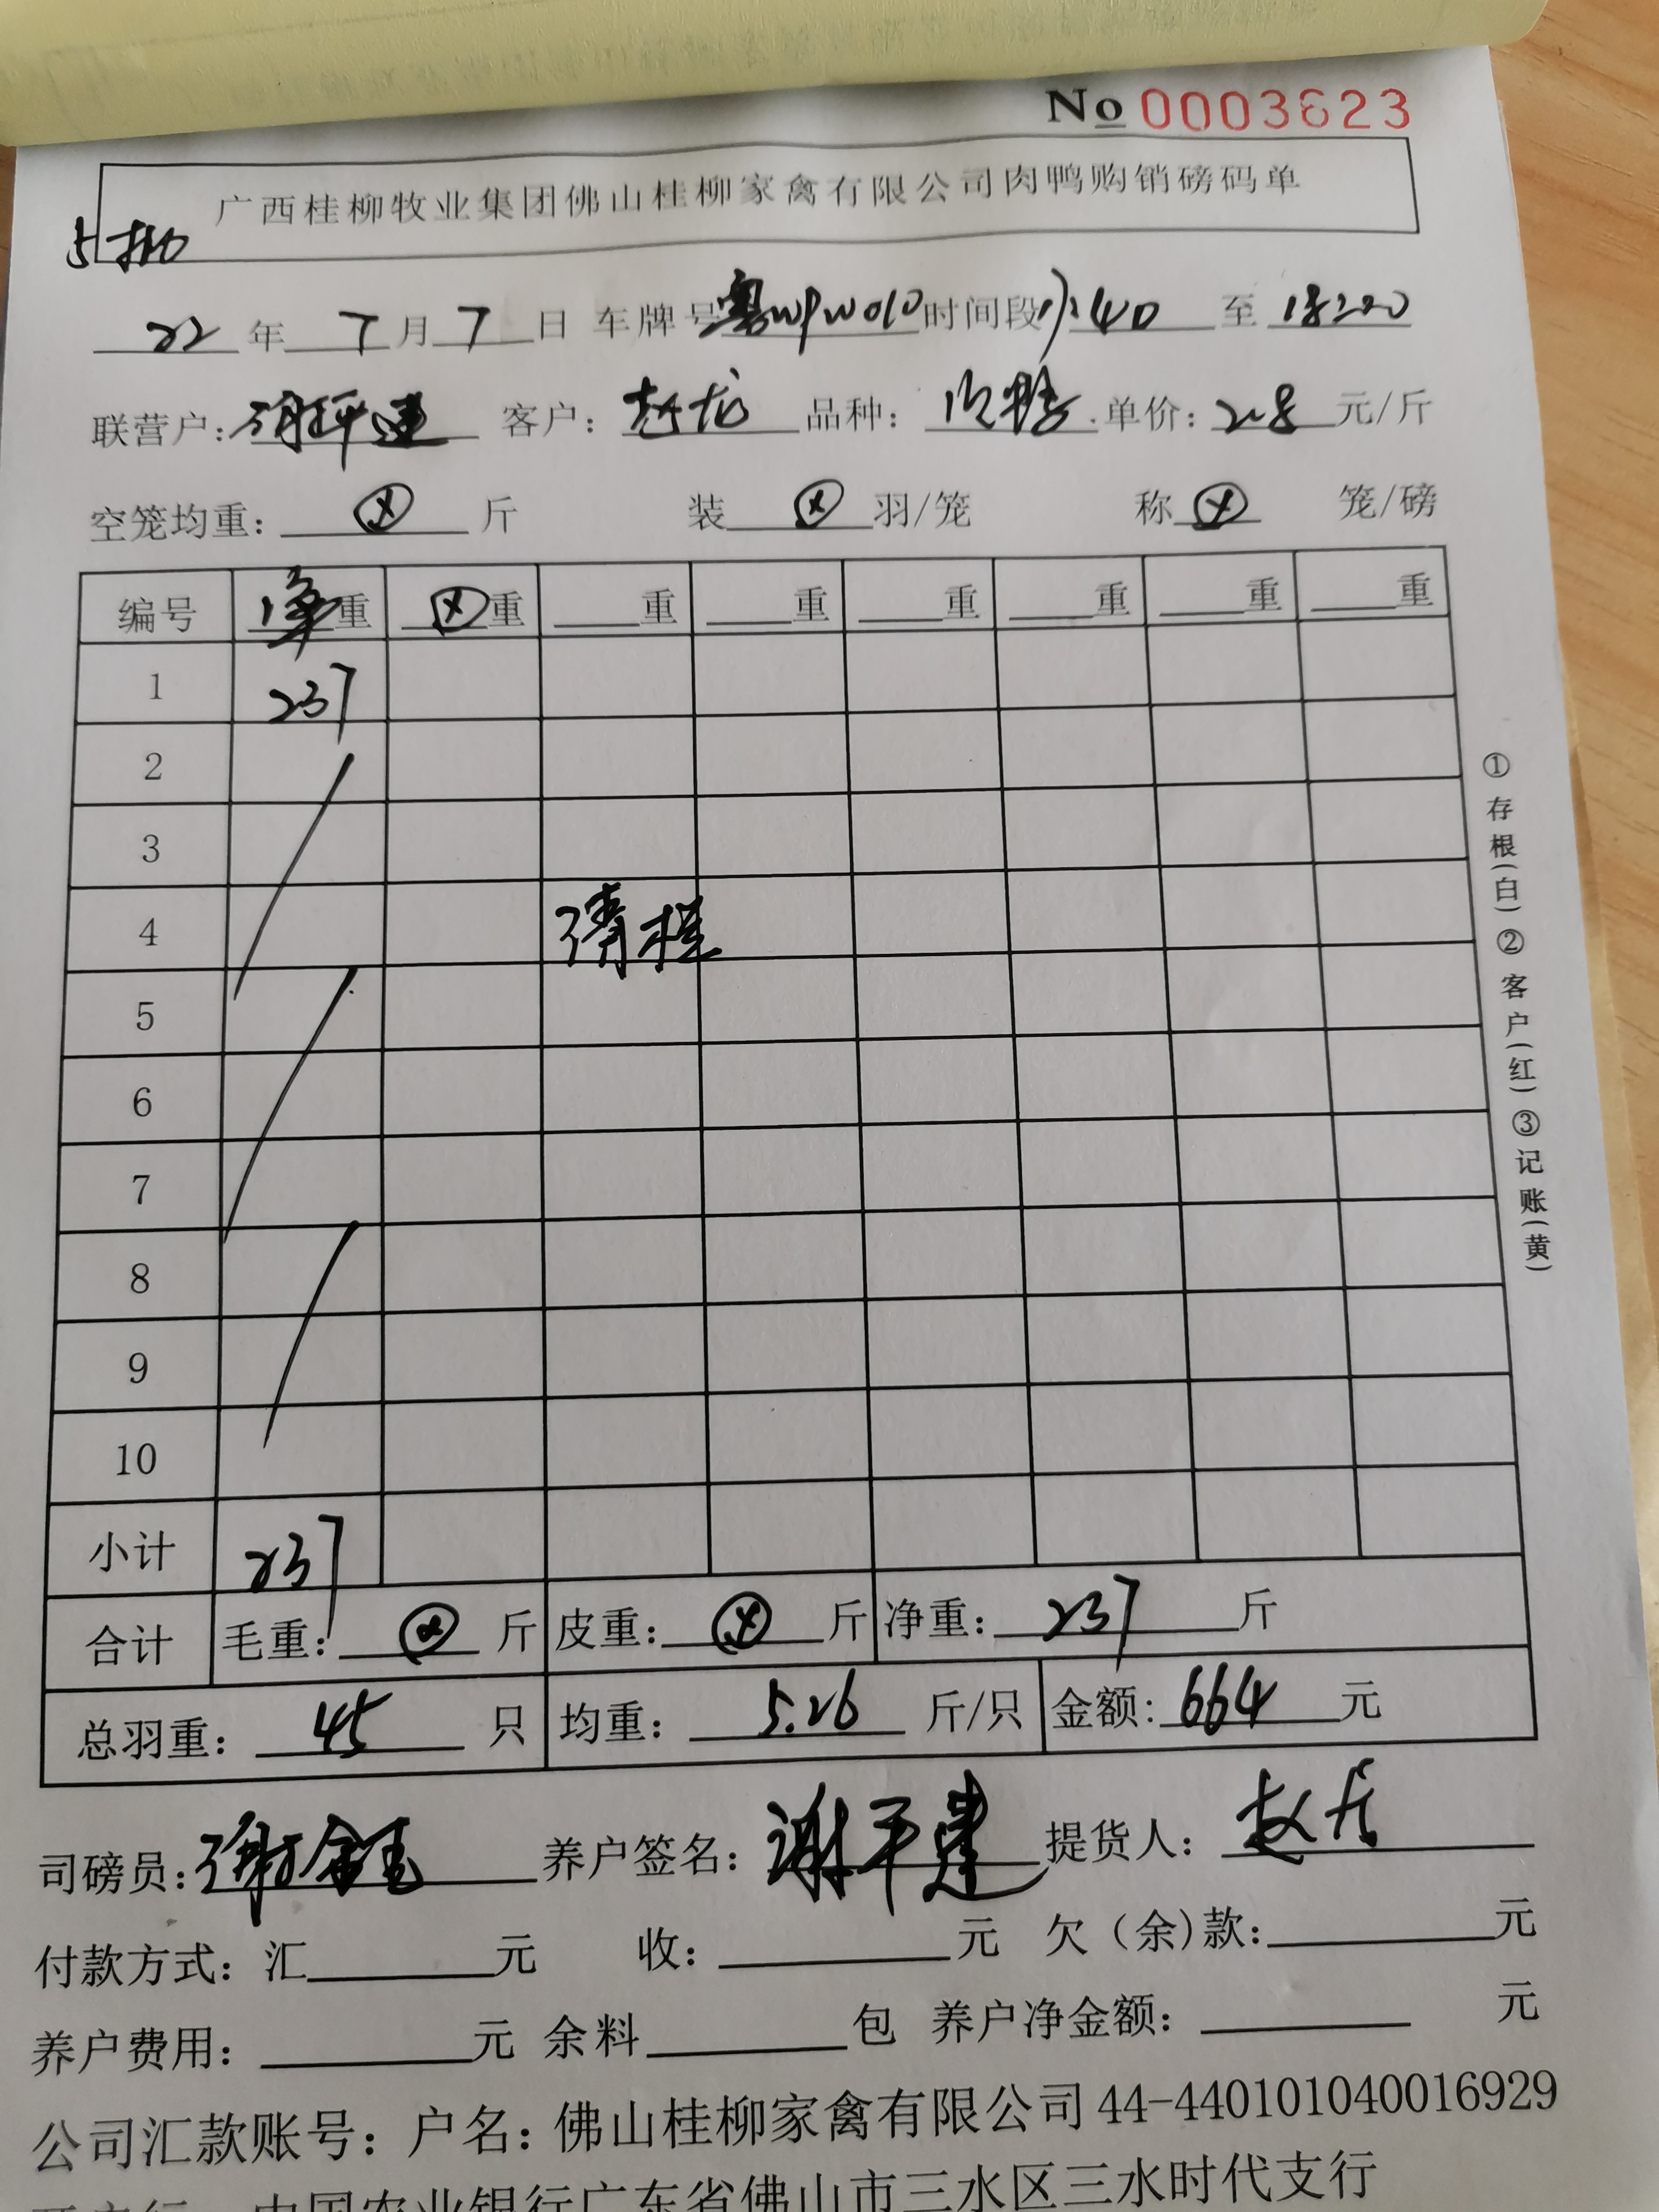 No 0003623
广西桂柳牧业集团佛山桂柳家禽有限公司肉鸭购销磅码单
5批
22年7月7日 车牌号粤 时间段 :40 至 18:20
联营户: 谢坪建 客户: 赵龙 品种: 次鸭 单价: 2.8 元/斤
空笼均重: ⊗ 斤 装 ⊗ 羽/笼 称 ⊗ 笼/磅
编号 净重 ⊗重 重 重 重 重 重 重
1 237
2
3
4 清棚
5
6
7
8
9
10
小计 237
合计 毛重: ⊗ 斤 皮重: ⊗ 斤 净重: 237 斤
总羽重: 45 只 均重: 5.26 斤/只 金额: 664 元
司磅员: 谢金玉 养户签名: 谢平建 提货人: 赵龙
付款方式: 汇 元 收: 元 欠(余)款: 元
养户费用: 元 余料 包 养户净金额: 元
公司汇款账号: 户名: 佛山桂柳家禽有限公司 44-440101040016929
中国农业银行广东省佛山市三水区三水时代支行
①存根(白)②客户(红)③记账(黄)